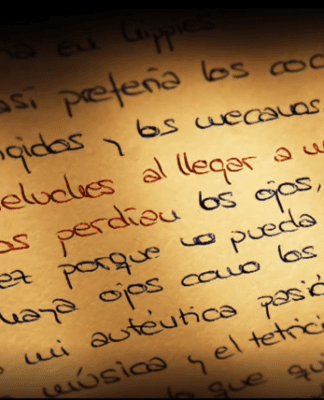 na en hippies
así prefería los coc
ngidos y los mecanos
eluches al llegar a u
as perdían los ojos,
ez porque no pueda
haya ojos como los
mi auténtica pasió
música y el tetrici
lo que qui